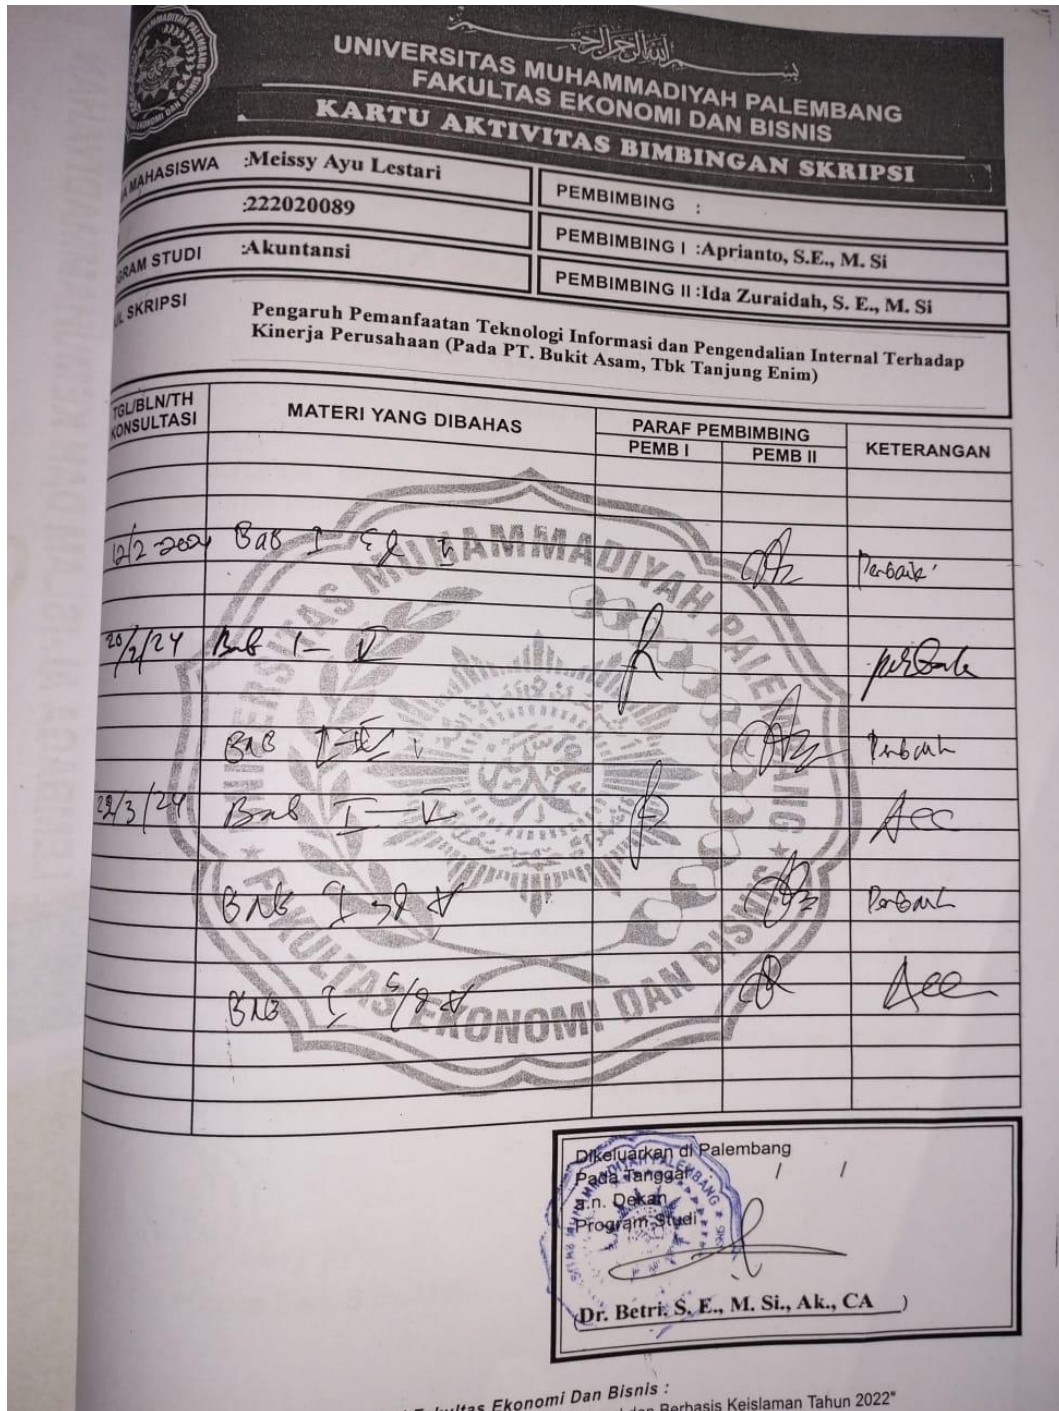 UNIVERSITAS MUHAMMADIYAH PALEMBANG
FAKULTAS EKONOMI DAN BISNIS
KARTU AKTIVITAS BIMBINGAN SKRIPSI
MAHASISWA :Meissy Ayu Lestari
:222020089
STUDI :Akuntansi
PEMBIMBING :
PEMBIMBING I :Aprianto, S.E., M. Si
PEMBIMBING II :Ida Zuraidah, S. E., M. Si
SKRIPSI
Pengaruh Pemanfaatan Teknologi Informasi dan Pengendalian Internal Terhadap
Kinerja Perusahaan (Pada PT. Bukit Asam, Tbk Tanjung Enim)
TGL/BLN/TH KONSULTASI MATERI YANG DIBAHAS PARAF PEMBIMBING KETERANGAN
PEMB I PEMB II
12/2 2024 Bab I
20/2/24 Bab I - V
Bab
22/3/24 Bab I - V Acc
Bab I
Bab I Acc
UNIVERSITAS MUHAMMADIYAH PALEMBANG
FAKULTAS EKONOMI DAN BISNIS
Dikeluarkan di Palembang
Pada Tanggal / /
a.n. Dekan
Program Studi
(Dr. Betri. S. E., M. Si., Ak., CA )
Ekonomi Dan Bisnis :
dan Berbasis Keislaman Tahun 2022"